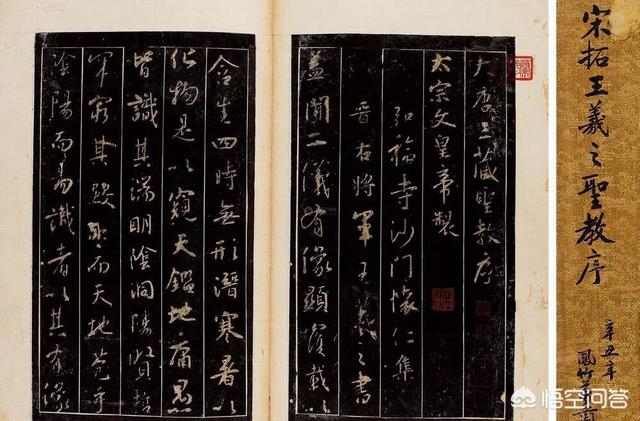 宋拓王羲之聖教序
大唐三藏聖教序
太宗文皇帝製
弘福寺沙門懷仁集
晉右將軍王羲之書
蓋聞二儀有像顯覆載以
含生四時無形潛寒暑以
化物是以窺天鑑地庸愚
皆識其端明陰洞陽賢哲
罕窮其數然而天地苞乎
陰陽而易識者以其有像
悟空问答